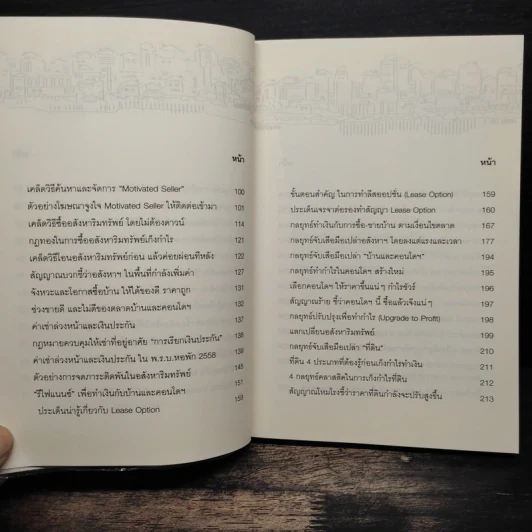 หน้า
เคล็ดวิธีค้นหาและจัดการ "Motivated Seller" 100
ตัวอย่างโฆษณาจูงใจ Motivated Seller ให้ติดต่อเข้ามา 101
เคล็ดวิธีซื้ออสังหาริมทรัพย์ โดยไม่ต้องดาวน์ 114
กฎทองในการซื้ออสังหาริมทรัพย์เก็งกำไร 121
เคล็ดวิธีโอนอสังหาริมทรัพย์ก่อน แล้วค่อยผ่อนทีหลัง 122
สัญญาณบวกชี้ว่าอสังหาฯ ในพื้นที่กำลังเพิ่มค่า 127
จังหวะและโอกาสซื้อบ้าน ให้ได้ของดี ราคาถูก
ช่วงขายดี และไม่ดีของตลาดบ้านและคอนโดฯ
ค่าเช่าล่วงหน้าและเงินประกัน
กฎหมายควบคุมให้เช่าที่อยู่อาศัย "การเรียกเงินประกัน" 138
ค่าเช่าล่วงหน้าและเงินประกัน ใน พ.ร.บ.หอพัก 2558
ตัวอย่างการจดภาระติดพันในอสังหาริมทรัพย์
"รีไฟแนนซ์" เพื่อทำเงินกับบ้านและคอนโดฯ
ประเด็นน่ารู้เกี่ยวกับ Lease Option
หน้า
ขั้นตอนสำคัญ ในการทำลีสออปชั่น (Lease Option) 159
ประเด็นเจรจาต่อรองทำสัญญา Lease Option 160
กลยุทธ์ทำเงินกับการซื้อ-ขายบ้าน ตามเงื่อนไขตลาด 167
กลยุทธ์จับเสือมือเปล่าอสังหาฯ โดยลงแต่แรงและเวลา 177
กลยุทธ์จับเสือมือเปล่า "บ้านและคอนโดฯ" 194
กลยุทธ์ทำกำไรในคอนโดฯ สร้างใหม่ 195
เลือกคอนโดฯ ให้ราคาขึ้นแน่ ๆ กำไรชัวร์ 196
สัญญาณร้าย ชี้ว่าคอนโดฯ นี้ ซื้อแล้วเจ๊งแน่ ๆ 197
กลยุทธ์ปรับปรุงเพื่อทำกำไร (Upgrade to Profit) 198
แลกเปลี่ยนอสังหาริมทรัพย์ 199
กลยุทธ์จับเสือมือเปล่า "ที่ดิน" 210
ที่ดิน 4 ประเภทที่ต้องรู้ก่อนเก็งกำไรทำเงิน 211
4 กลยุทธ์คลาสสิคในการเก็งกำไรที่ดิน 212
สัญญาณไหมโรงชี้ว่าราคาที่ดินกำลังจะปรับสูงขึ้น 213